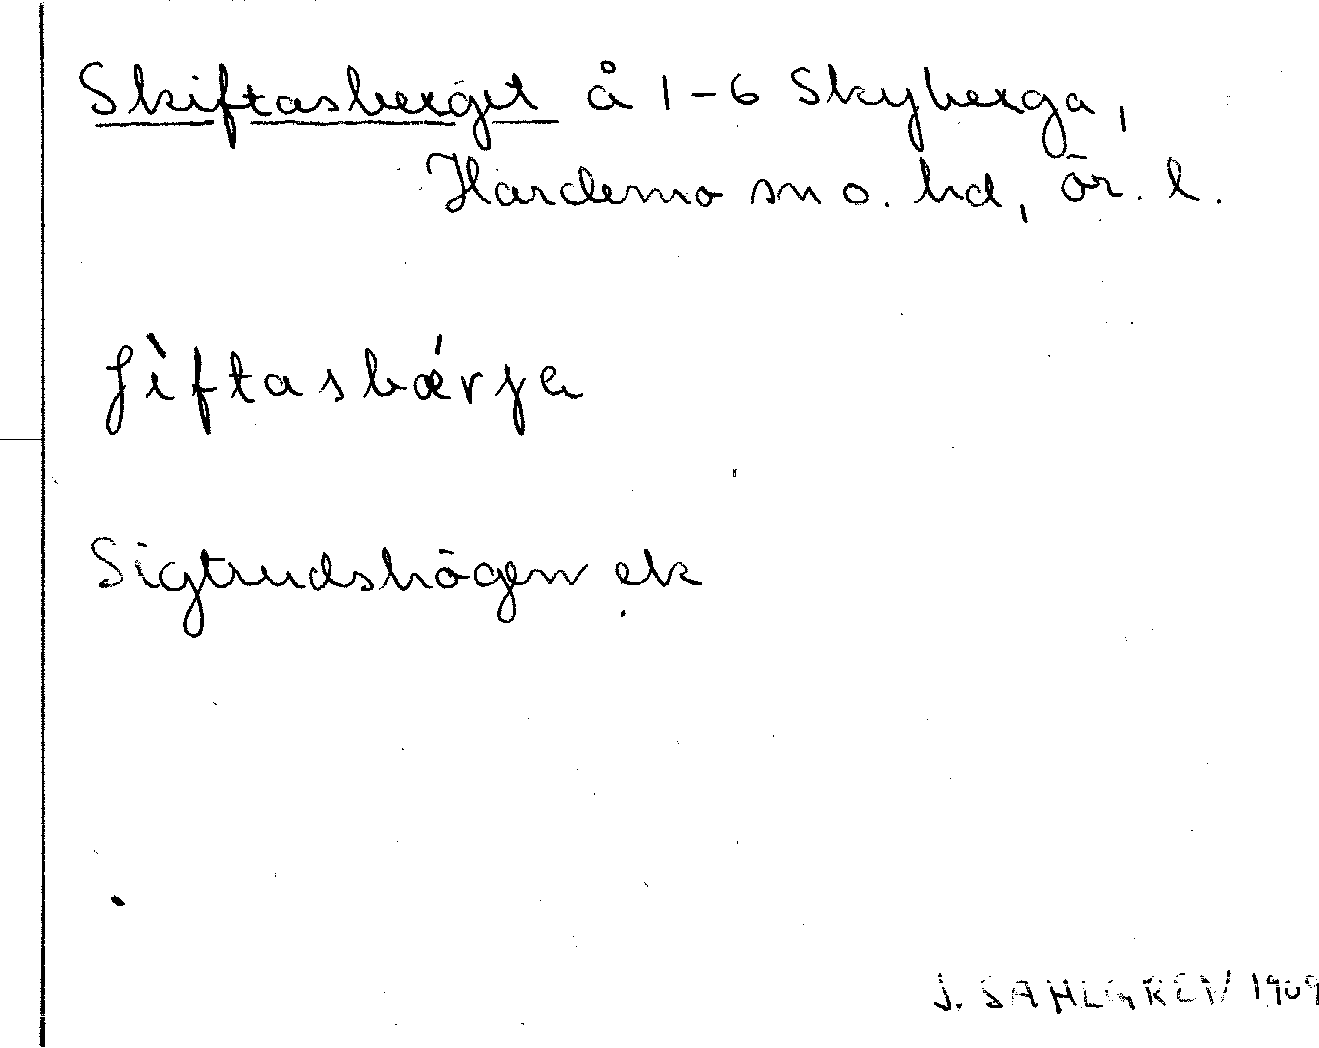 Skiftasberget å 1-6 Skyberga,
Hardemo sn o. hd, ör. l.
ʃìftasbǽrjə
Sigtrudshögen ek
J. SAHLGREN 1909